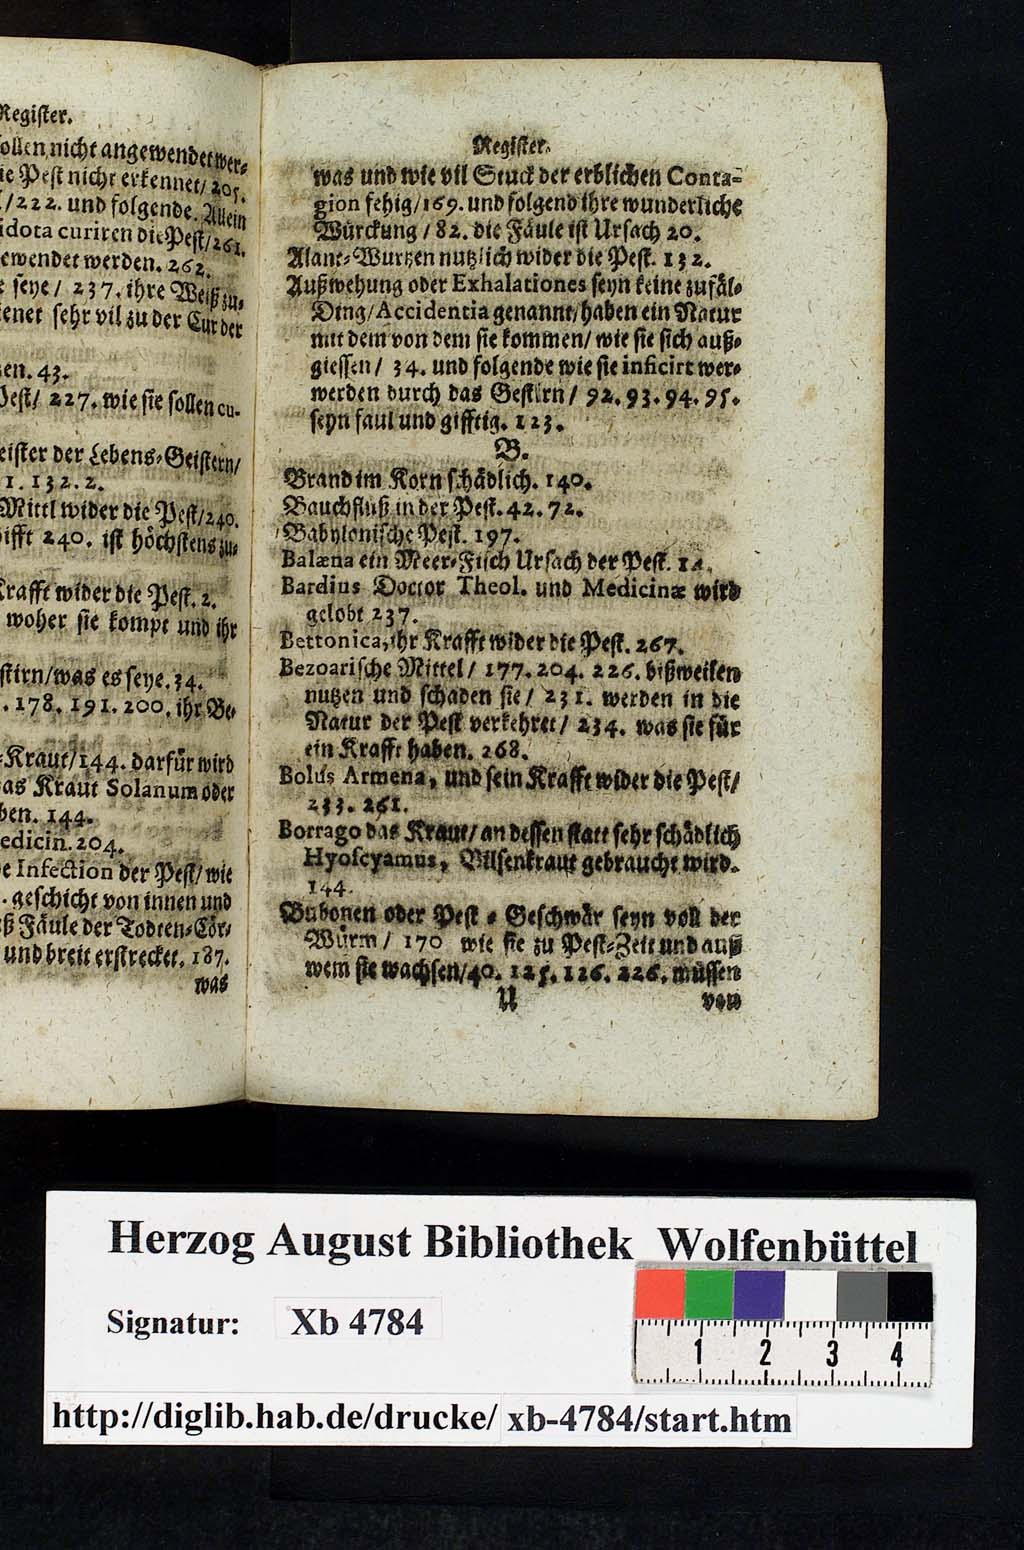 Register.
ollen nicht angewendet wer⸗
ie Pest nicht erkennet/ 205.
/222. und folgende. Allein
idota curiren die Pest/261.
ewendet werden. 262.
seye/ 237. ihre Weiß zu⸗
enet sehr vil zu der Cur der
en. 43.
Pest/ 227. wie sie sollen cu⸗
eister der Lebens⸗Geistern/
1. 132. 2.
Mittl wider die Pest/240.
ifft 240. ist höchstens zu⸗
Krafft wider die Pest. 2.
woher sie kompt und ihr
stirn/was es seye. 34.
. 178. 191. 200. ihr Be⸗
⸗Kraut/144. darfür wird
as Kraut Solanum oder
ben. 144.
edicin. 204.
e Infection der Pest/ wie
. geschicht von innen und
ß Fäule der Todten⸗Cör⸗
und breit erstrecket. 187.
was
Register.
was und wie vil Stuck der erblichen Conta⸗
gion fehig/169. und folgend ihre wunderliche
Würckung / 82. die Fäule ist Ursach 20.
Alant⸗Wurtzen nutzlich wider die Pest. 132.
Außwehung oder Exhalationes seyn keine zufäl⸗
Ding/Accidentia genannt/haben ein Natur
mit dem von dem sie kommen/ wie sie sich auß⸗
giessen/ 34. und folgende wie sie inficirt wer⸗
werden durch das Gestirn/ 92. 93. 94. 95.
seyn faul und gifftig. 123.
B.
Brand im Korn schädlich. 140.
Bauchfluß in der Pest. 42. 72.
Babylonische Pest. 197.
Balæna ein Meer⸗Fisch Ursach der Pest.
Bardius Doctor Theol. und Medicinæ wird
gelobt 237.
Bettonica, ihr Krafft wider die Pest. 267.
Bezoarische Mittel/ 177. 204. 226. bißweilen
nutzen und schaden sie/ 231. werden in die
Natur der Pest verkehret/ 234. was sie für
ein Krafft haben. 268.
Bolus Armena, und sein Krafft wider die Pest/
233. 261.
Borrago das Kraut/ an dessen statt sehr schädlich
Hyoscyamus, Bilsenkraut gebraucht wird.
144.
Bubonen oder Pest⸗Geschwär seyn voll der
Würm/ 170 wie sie zu Pest⸗Zeit und auß
wem sie wachsen/40. 125. 126. 226. müssen
U
von
Herzog August Bibliothek Wolfenbüttel
Signatur: Xb 4784
1 2 3 4
http://diglib.hab.de/drucke/ xb-4784/start.htm